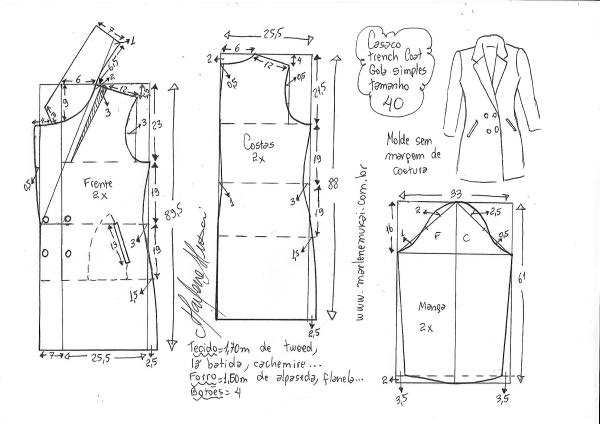 Casaco
trench Coat
Gola simples
tamanho
40
Molde sem
margem de
costura
7
1
6,5
6
2
12
9
3
3
23
Frente
2x
19
89,5
13
3
19
1,5
7
25,5
2,5
25,5
2
6
4
12
0,5
0,5
21,5
Costas
2x
19
1
3
88
19
1,5
2,5
Marlene Mukai
www.marlenemukai.com.br
33
16
2
2,5
1
F
C
0,5
61
Manga
2x
2
3,5
3,5
Tecido=1,70m de tweed,
lã batida, cachemire...
Forro=1,50m de alpaseda, flanela...
Botões=4